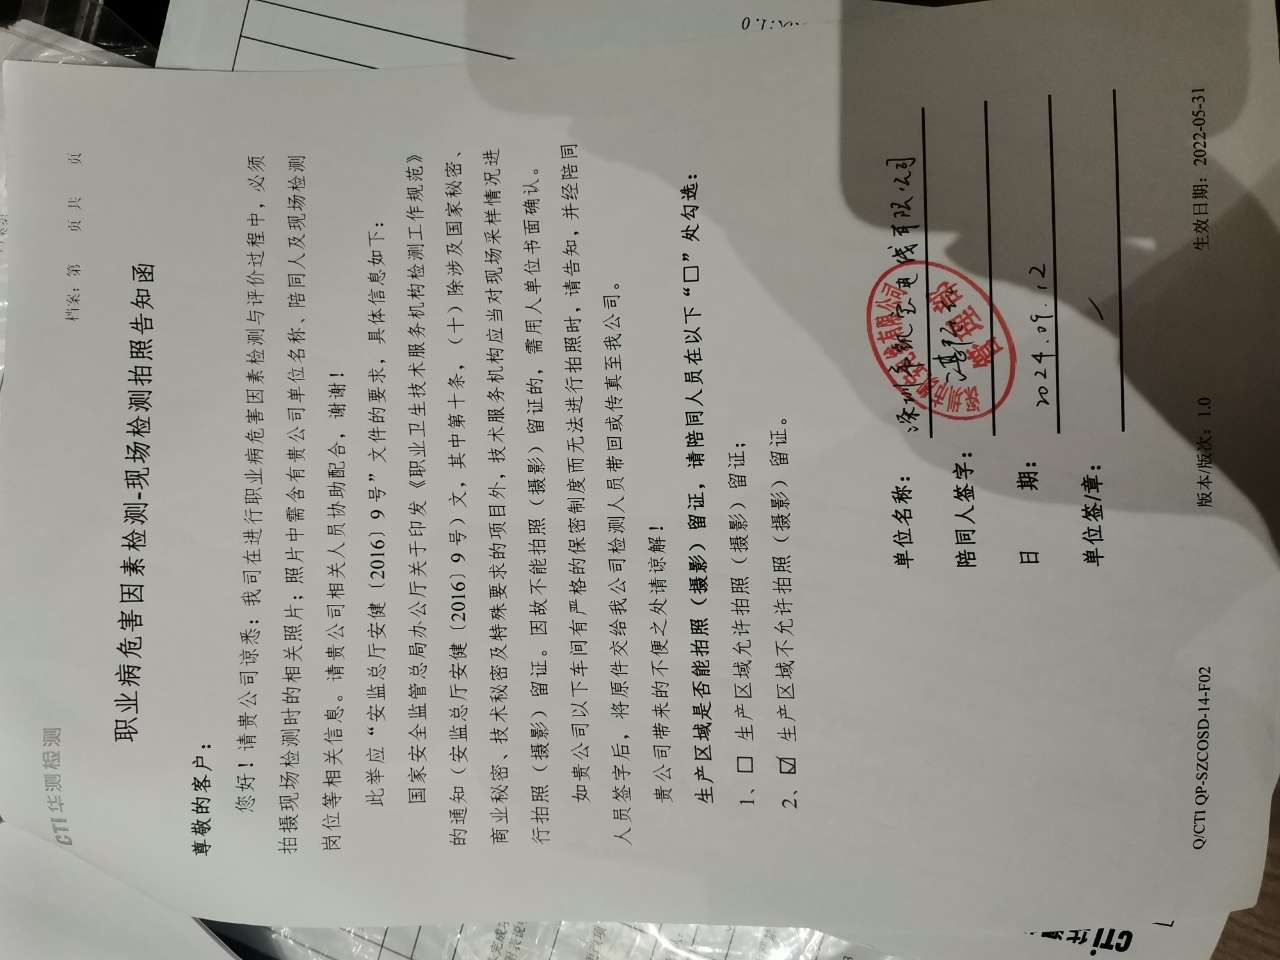 CTI 华测检测
档案：第 页 共 页
职业病危害因素检测-现场检测拍照告知函
尊敬的客户：
您好！请贵公司谅悉：我司在进行职业病危害因素检测与评价过程中，必须
拍摄现场检测时的相关照片；照片中需含有贵公司单位名称、陪同人及现场检测
岗位等相关信息。请贵公司相关人员协助配合，谢谢！
此举应“安监总厅安健〔2016〕9 号”文件的要求，具体信息如下：
国家安全监管总局办公厅关于印发《职业卫生技术服务机构检测工作规范》
的通知（安监总厅安健〔2016〕9 号）文，其中第十条，（十）除涉及国家秘密、
商业秘密、技术秘密及特殊要求的项目外，技术服务机构应当对现场采样情况进
行拍照（摄影）留证。因故不能拍照（摄影）留证的，需用人单位书面确认。
如贵公司以下车间有严格的保密制度而无法进行拍照时，请告知，并经陪同
人员签字后，将原件交给我公司检测人员带回或传真至我公司。
贵公司带来的不便之处请谅解！
生产区域是否能拍照（摄影）留证，请陪同人员在以下“□”处勾选：
1、□ 生产区域允许拍照（摄影）留证；
2、☑ 生产区域不允许拍照（摄影）留证。
单位名称： 深圳市凯宝电线有限公司
陪同人签字：
日 期： 2024.09.12
单位签/章： /
Q/CTI QP-SZCOSD-14-F02 版本/版次：1.0 生效日期：2022-05-31
CTI